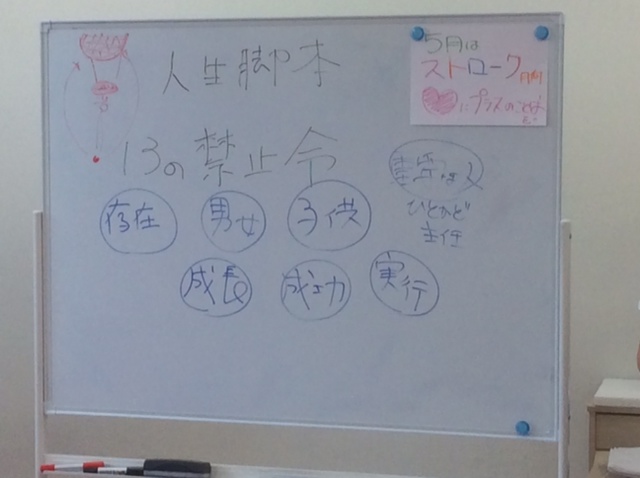 人生脚本
5月は
ストローク月間
にプラスのことばを
13の禁止令
ひとかど
主任
存在
男女
子供
成長
成功
実行